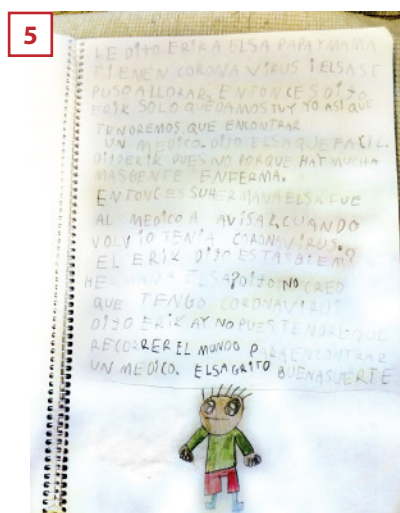 5
LE DIJO ERIK A ELSA PAPA Y MAMA
TIENEN CORONAVIRUS I ELSA SE
PUSO ALLORAR, ENTONCES DIJO
ERIK SOLO QUEDAMOS TU Y YO ASI QUE
TENDREMOS QUE ENCONTRAR
UN MEDICO. DIJO ELSA QUE FACIL.
DIJO ERIK PUES NO PORQUE HAY MUCHA
MAS GENTE ENFERMA.
ENTONCES SU HERMANA ELSA FUE
AL MEDICO A AVISAR, CUANDO
VOLVIO TENIA CORONAVIRUS.
EL ERIK DIJO ESTAS BIEN?
HERMANA ELSA? DIJO NO CREO
QUE TENGO CORONAVIRUS
DIJO ERIK AY NO PUES TENDRE QUE
RECORRER EL MUNDO PARA ENCONTRAR
UN MEDICO. ELSA GRITO BUENA SUERTE